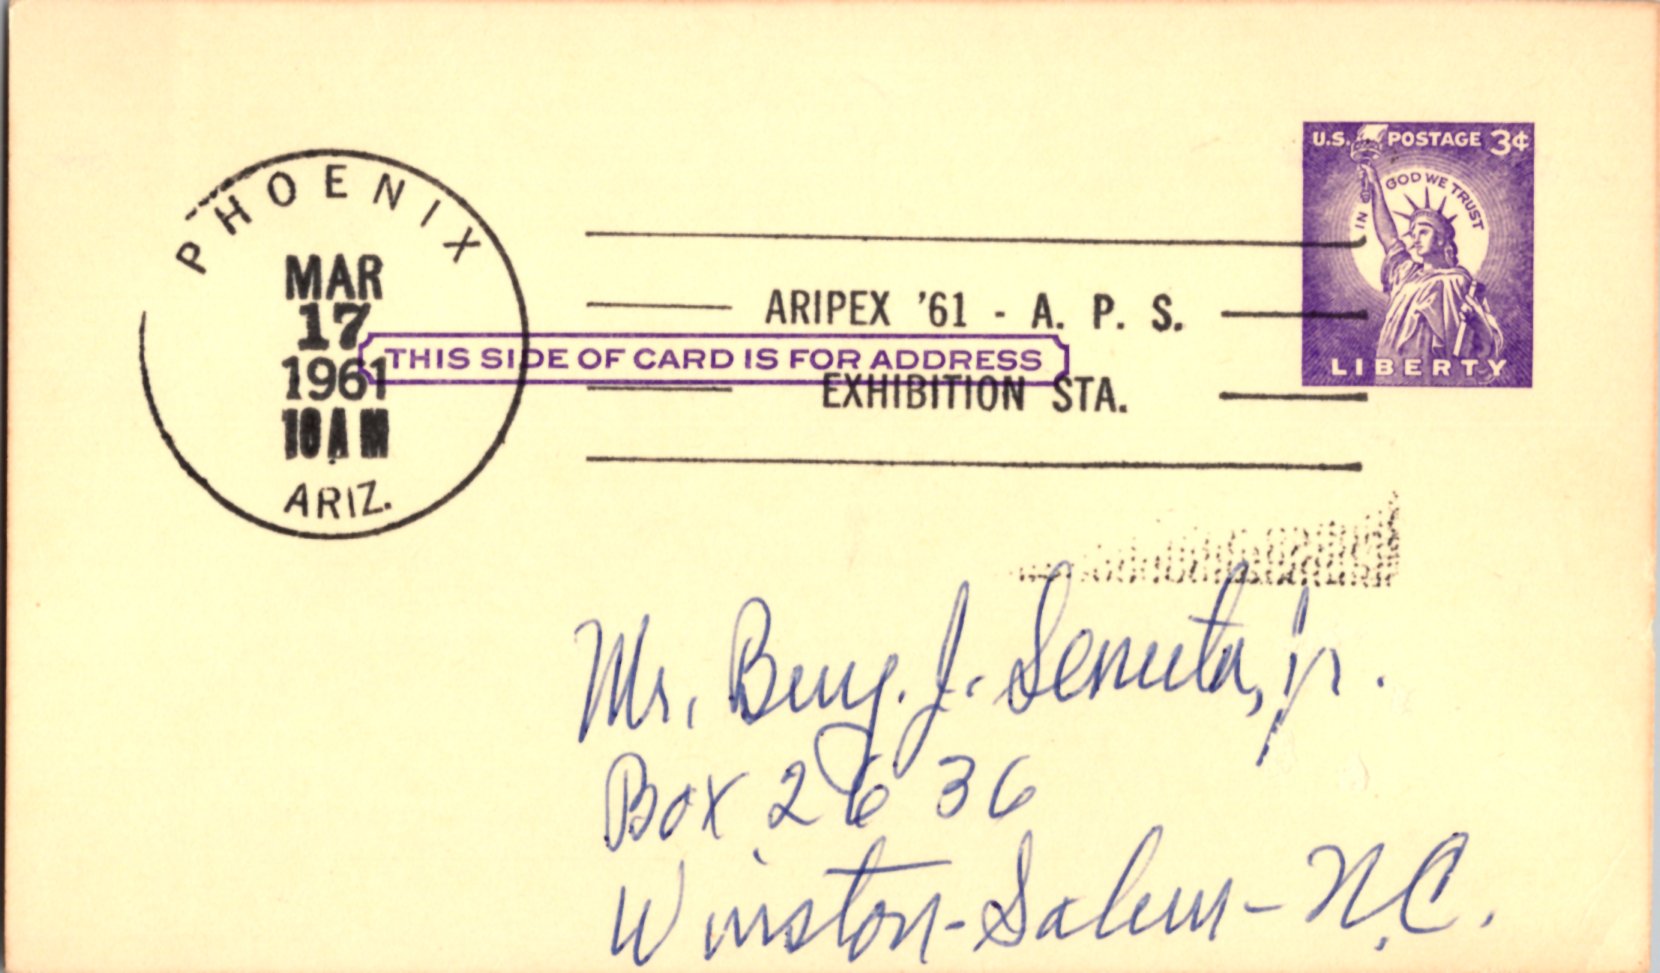 PHOENIX
MAR
17
1961
10 AM
ARIZ.
ARIPEX '61 - A. P. S.
EXHIBITION STA.
THIS SIDE OF CARD IS FOR ADDRESS
U.S. POSTAGE 3¢
IN GOD WE TRUST
LIBERTY
Mr. Benj. J. Senuta, jr.
Box 2636
Winston-Salem-N.C.